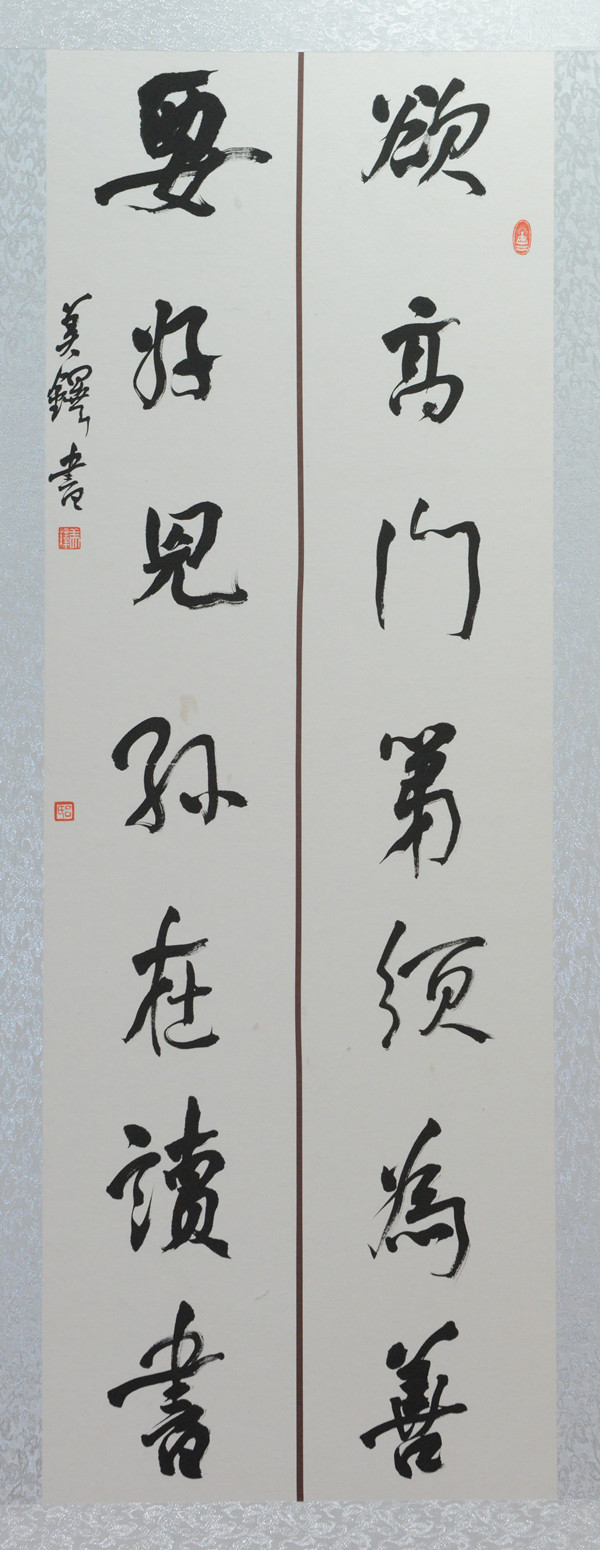 欲高門第須為善
要好兒孫在讀書
美鐸書